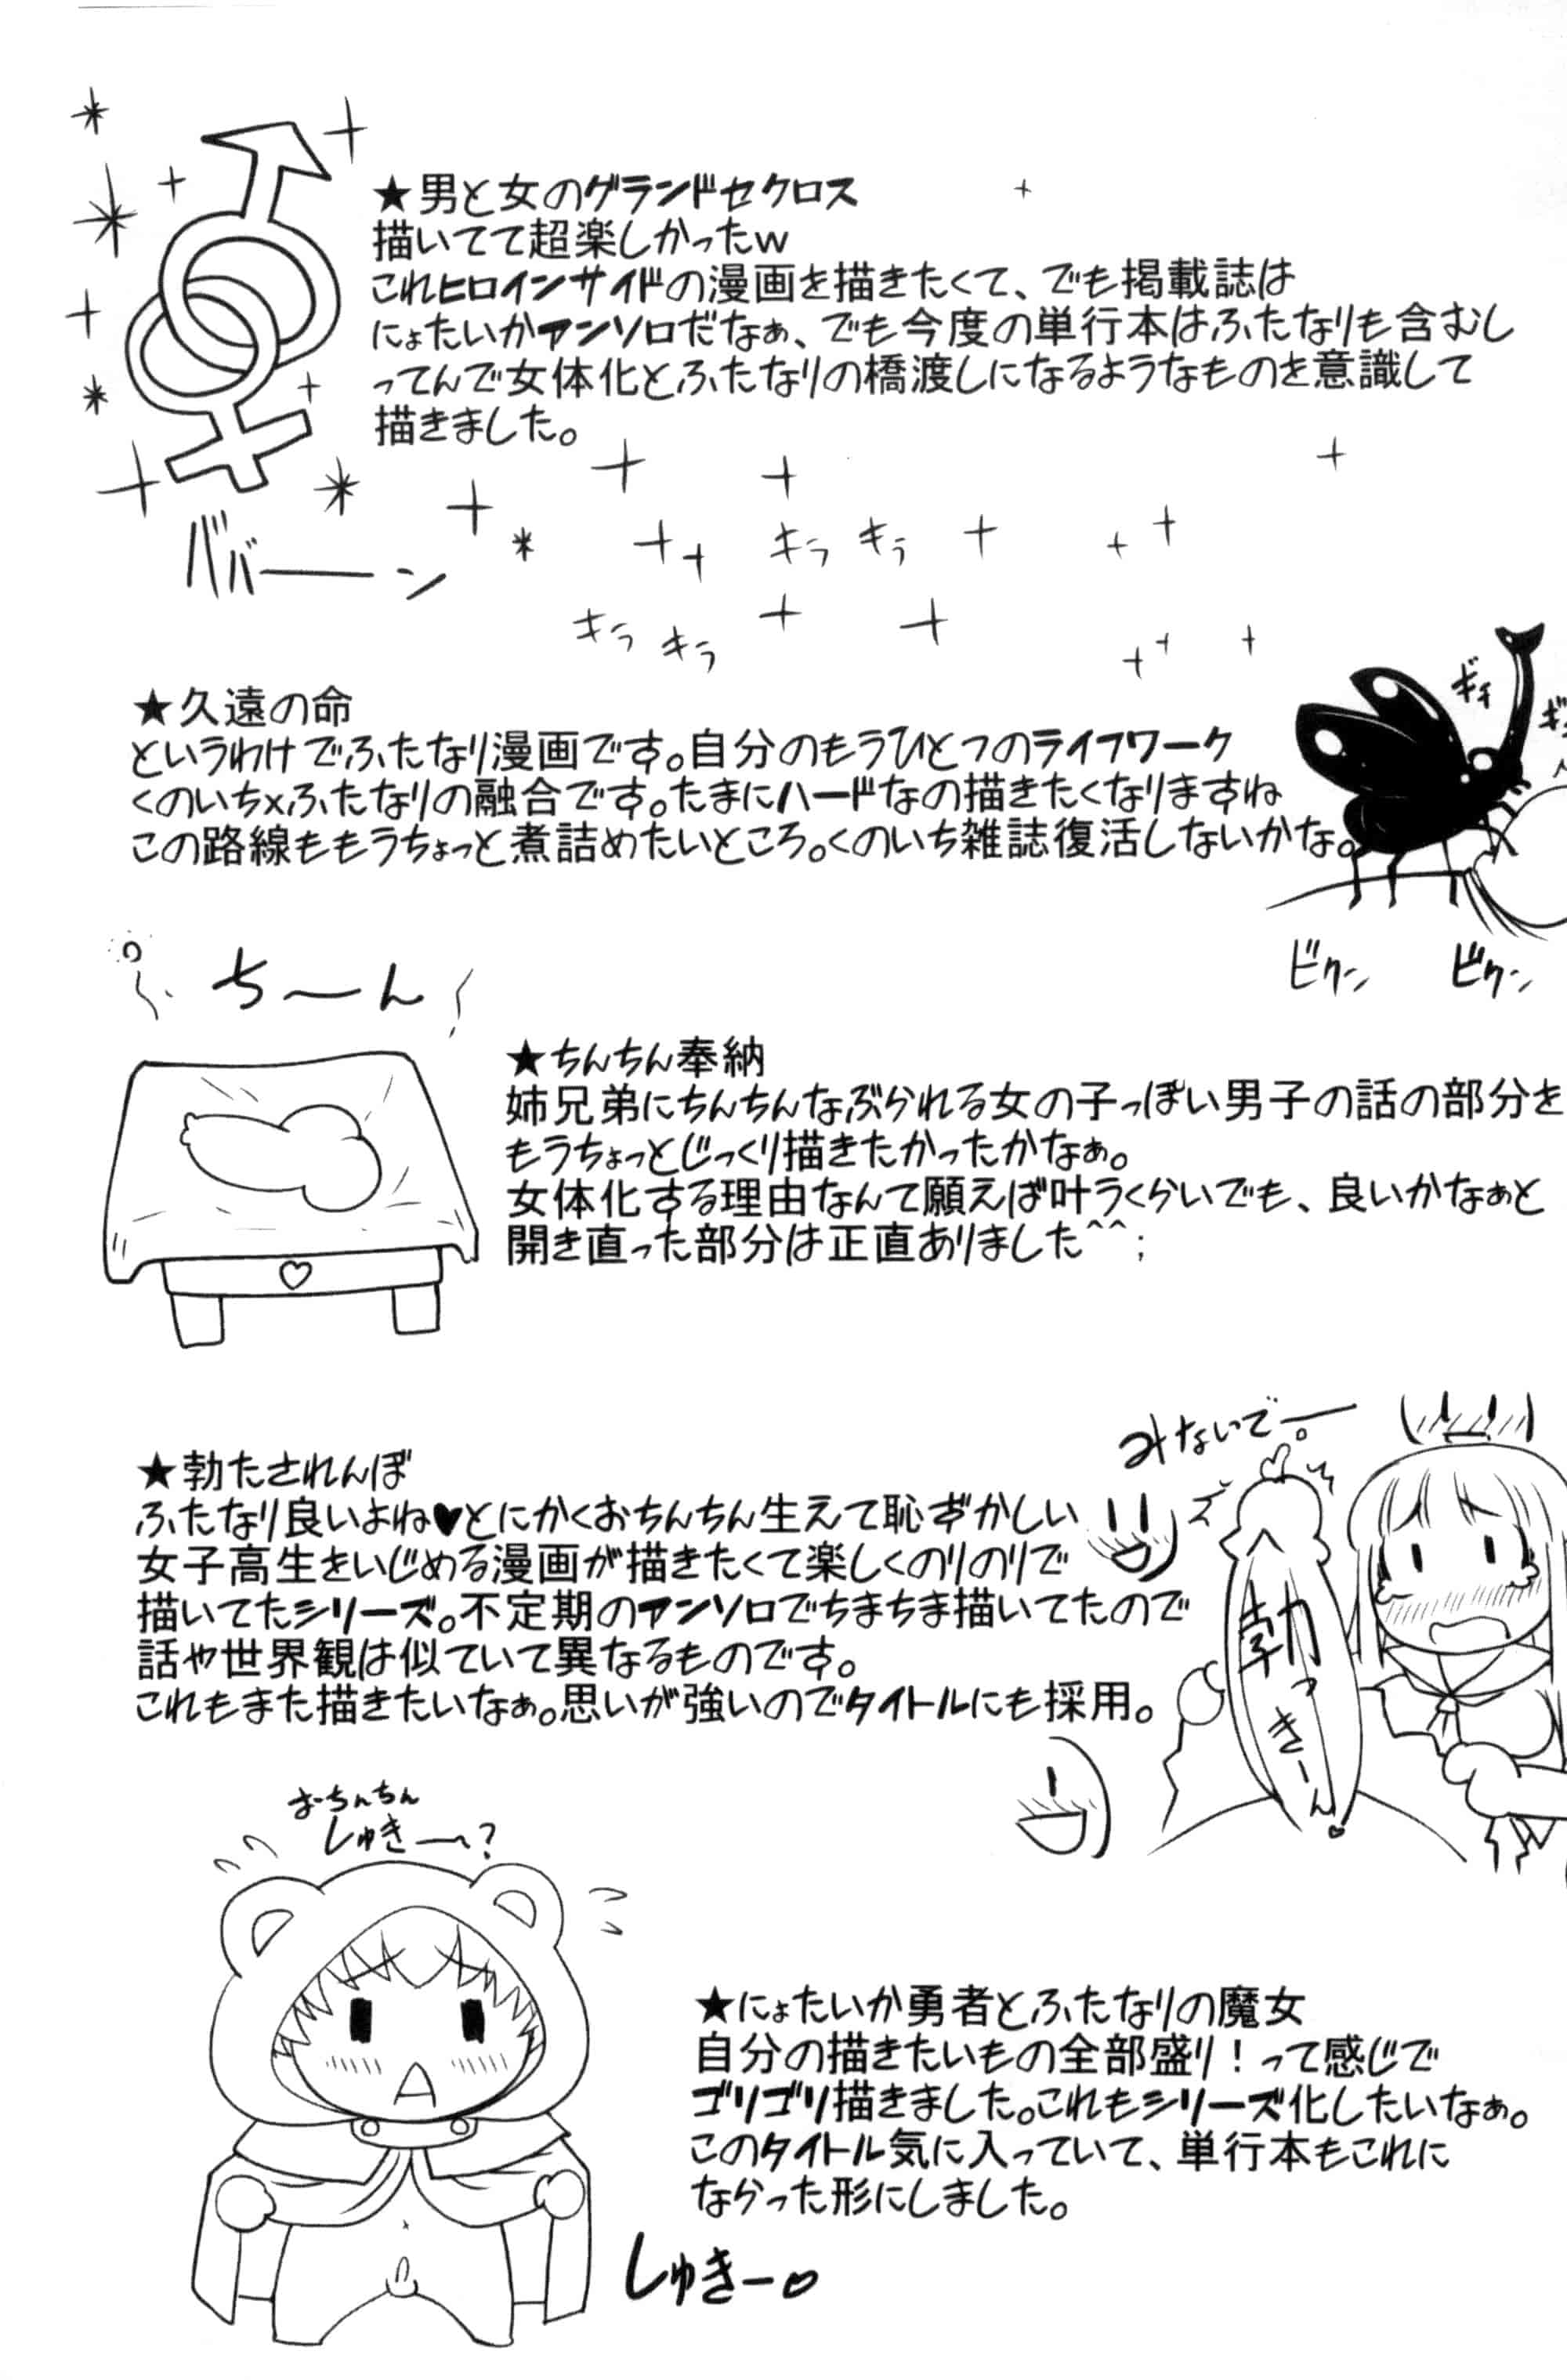 ★男と女のグランドセクロス
描いてて超楽しかったw
これヒロインサイドの漫画を描きたくて、でも掲載誌は
にょたいかアンソロだなぁ、でも今度の単行本はふたなりも含むし
ってんで女体化とふたなりの橋渡しになるようなものを意識して
描きました。
ババーーン
キラ キラ
キラ キラ
★久遠の命
というわけでふたなり漫画です。自分のもうひとつのライフワーク
くのいち×ふたなりの融合です。たまにハードなの描きたくなりますね
この路線ももうちょっと煮詰めたいところ。くのいち雑誌復活しないかな。
ギチ
ビクン ビクン
ちーん
★ちんちん奉納
姉兄弟にちんちんなぶられる女の子っぽい男子の話の部分を
もうちょっとじっくり描きたかったかなぁ。
女体化する理由なんて願えば叶うくらいでも、良いかなぁと
開き直った部分は正直ありました^^;
みないでー。
★勃たされんぼ
ふたなり良いよね♥とにかくおちんちん生えて恥ずかしい
女子高生をいじめる漫画が描きたくて楽しくのりのりで
描いてたシリーズ。不定期のアンソロでちまちま描いてたので
話や世界観は似ていて異なるものです。
これもまた描きたいなぁ。思いが強いのでタイトルにも採用。
勃っきーん♡
おちんちん
しゅきー?
★にょたいか勇者とふたなりの魔女
自分の描きたいもの全部盛り!って感じで
ゴリゴリ描きました。これもシリーズ化したいなぁ。
このタイトル気に入っていて、単行本もこれに
ならった形にしました。
しゅきー♡